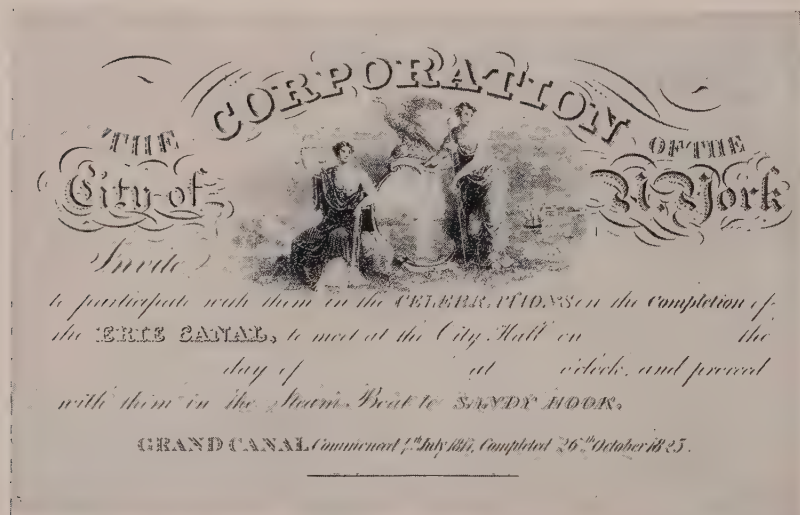 THE CORPORATION OF THE
City of N. York
Invite
to participate with them in the CELEBRATIONS on the completion of
the ERIE CANAL, to meet at the City Hall on the
day of at o'clock, and proceed
with them in the Steam Boat to SANDY HOOK.
GRAND CANAL Commenced 4th July 1817, Completed 26th October 1825.